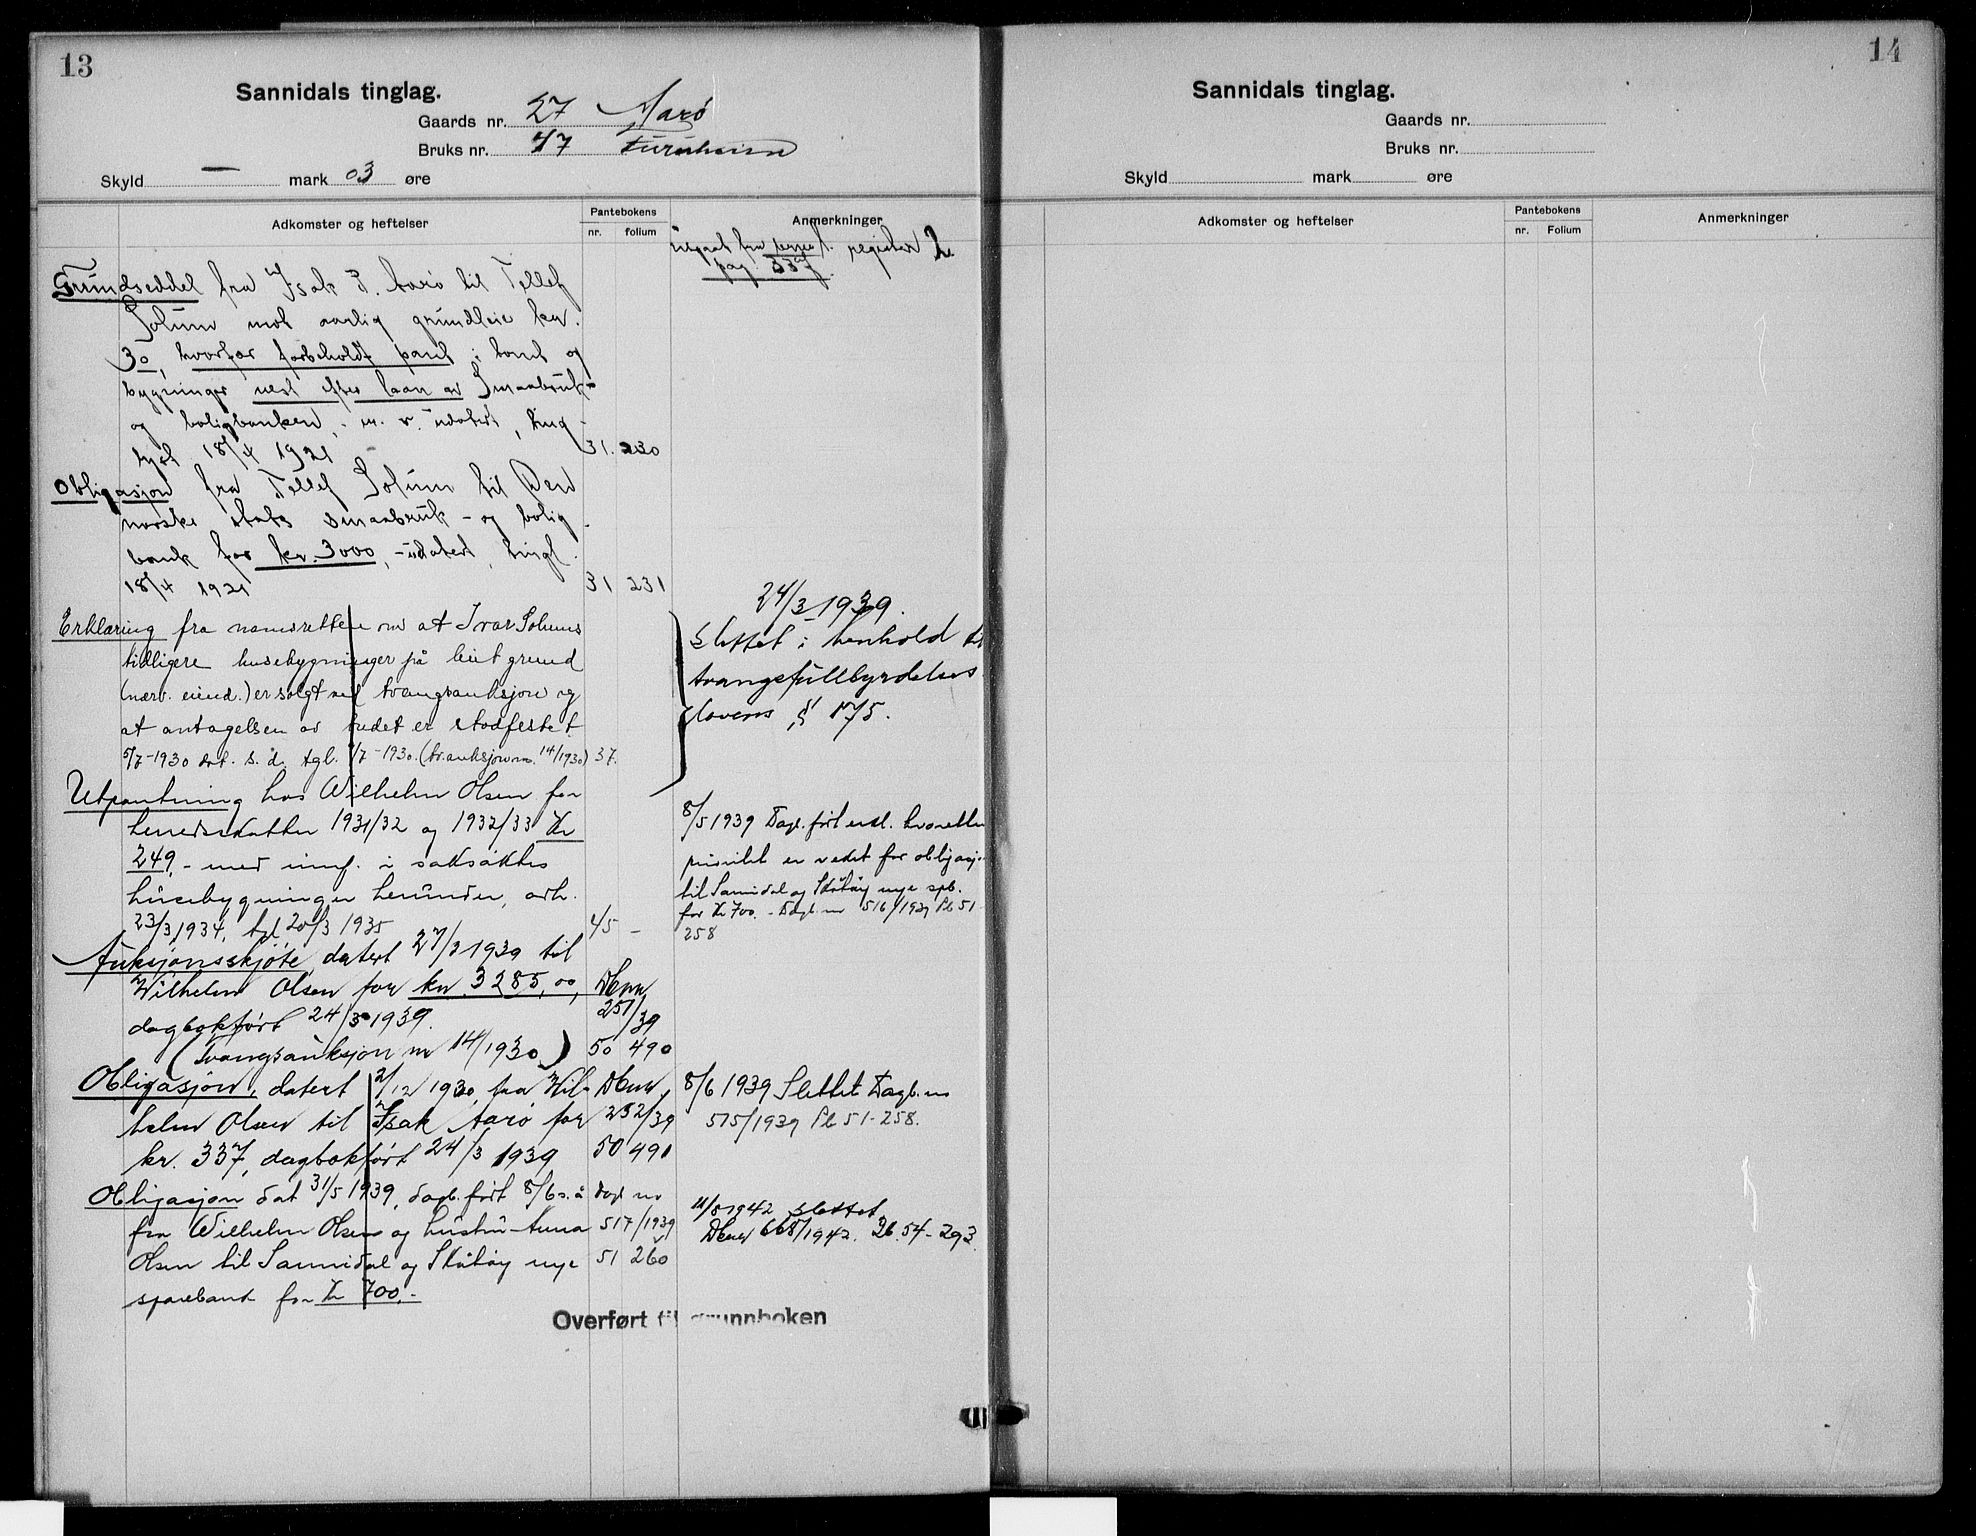 13
Sannidals tinglag.
Gaards nr. 27 Aarö
Bruks nr. 47 Furuheim
Skyld — mark 03 øre
Adkomster og heftelser
Pantebokens
nr. folium
Anmerkninger
fra register 2
pag. 337.
Grundseddel fra Isak P. Aarö til Tellef
Solum mot aarlig grundleie kr.
30, hvorfor forbeholdt pant i tomt og
bygninger nest efter laan av Smaabruk-
og boligbanken, - m. v. udatert, ting-
lyst 18/4 1921 31. 230
Obligasjon fra Tellef Solum til Den
norske stats smaabruk- og bolig-
bank for kr. 3000, - udatert, tingl.
18/4 1921 31 231
Erklæring fra namsretten om at Ivar Solums
tidligere husebygninger på leiet grund
(nærv. eiend.) er solgt ved tvangsauksjon og
at antagelsen av budet er stadfestet
5/7-1930 dat. s. d. tgl. /7-1930. (tv.auksjon nr. 14/1930) 37.
24/3 1939.
Slettet i henhold til
tvangsfullbyrdelses
lovens § 175.
Utpantning hos Wilhelm Olsen for
herredsskatten 1931/32 og 1932/33 Kr
249,- med innf. i saksøktes
husebygninger herunder, avh.
23/3 1934, tgl 20/3 1935 45 -
8/5 1939 Dagb.ført erkl. hvoretter
prioritet er veket for obligasj.
til Sannidal og Skåtøy nye spb.
for Kr 700. - Dagb. nr 516/1939 Pb 51
258
Auksjonsskjøte, datert 27/3 1939 til
Wilhelm Olsen for kr. 3285,00, Dbnr
dagbokført 24/3 1939. 251/39
(Tvangsauksjon nr 14/1930) 50 490
Obligasjon, datert 2/12 1930, fra Wil- Dbnr
helm Olsen til Isak Aarö for 252/39
kr. 337, dagbokført 24/3 1939 50 491
8/6 1939 Slettet Dagb. nr
515/1939 Pb 51-258.
Obligasjon dat 31/5 1939, dagb.ført 8/6 s. å Dagb nr
fra Wilhelm Olsen og hustru Anna 517/1939
Olsen til Sannidal og Skåtøy nye 51 260
sparebank for Kr 700.-
11/8 1942 slettet
Dbnr 668/1942. Pb. 54-293.
Overført til grunnboken
14
Sannidals tinglag.
Gaards nr.
Bruks nr.
Skyld mark øre
Adkomster og heftelser
Pantebokens
nr. Folium
Anmerkninger